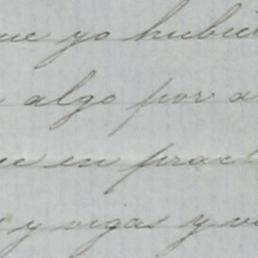 que yo hubie
algo por a
en prac
y vigas y v